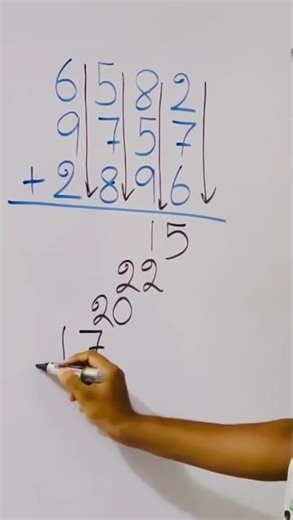 6582
9757
+2896
15
22
20
17